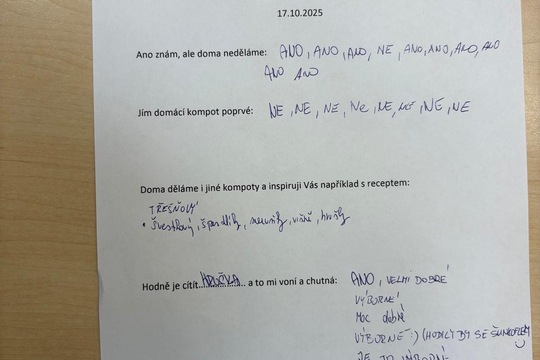 17.10.2025
Ano znám, ale doma neděláme: ANO, ANO, ANO, NE, ANO, ANO, ANO, ANO
ANO ANO
Jím domácí kompot poprvé: NE, NE, NE, NE, NE, NE, NE, NE
Doma děláme i jiné kompoty a inspiruji Vás například s receptem:
TŘEŠŇOVÝ
• švestkový, špendlíky, meruňky, višně, hrušky
Hodně je cítit HRUŠKA a to mi voní a chutná: ANO, VELMI DOBRÉ
VÝBORNÉ!
MOC dobré
VÝBORNÉ :) (HODILY BY SE
JE TO